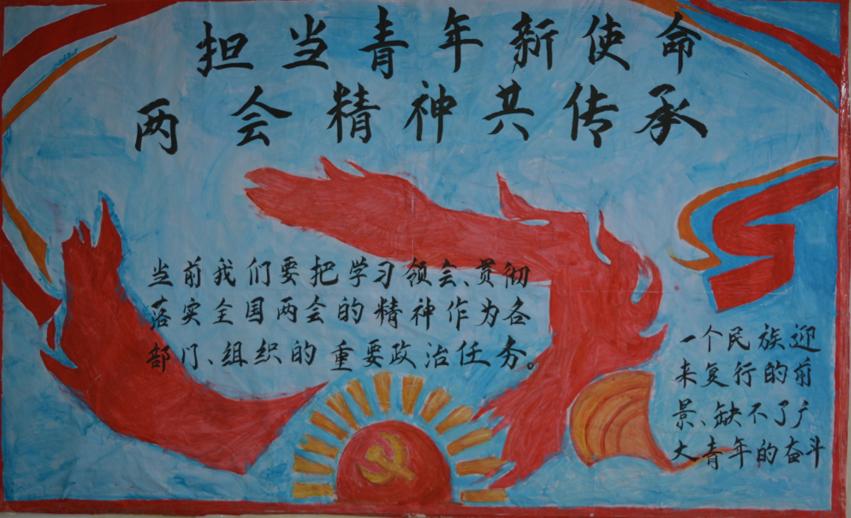 担当青年新使命
两会精神共传承
当前我们要把学习领会、贯彻
落实全国两会的精神作为各
部门、组织的重要政治任务。
一个民族、迎
来复行的前
景、缺不了广
大青年的奋斗